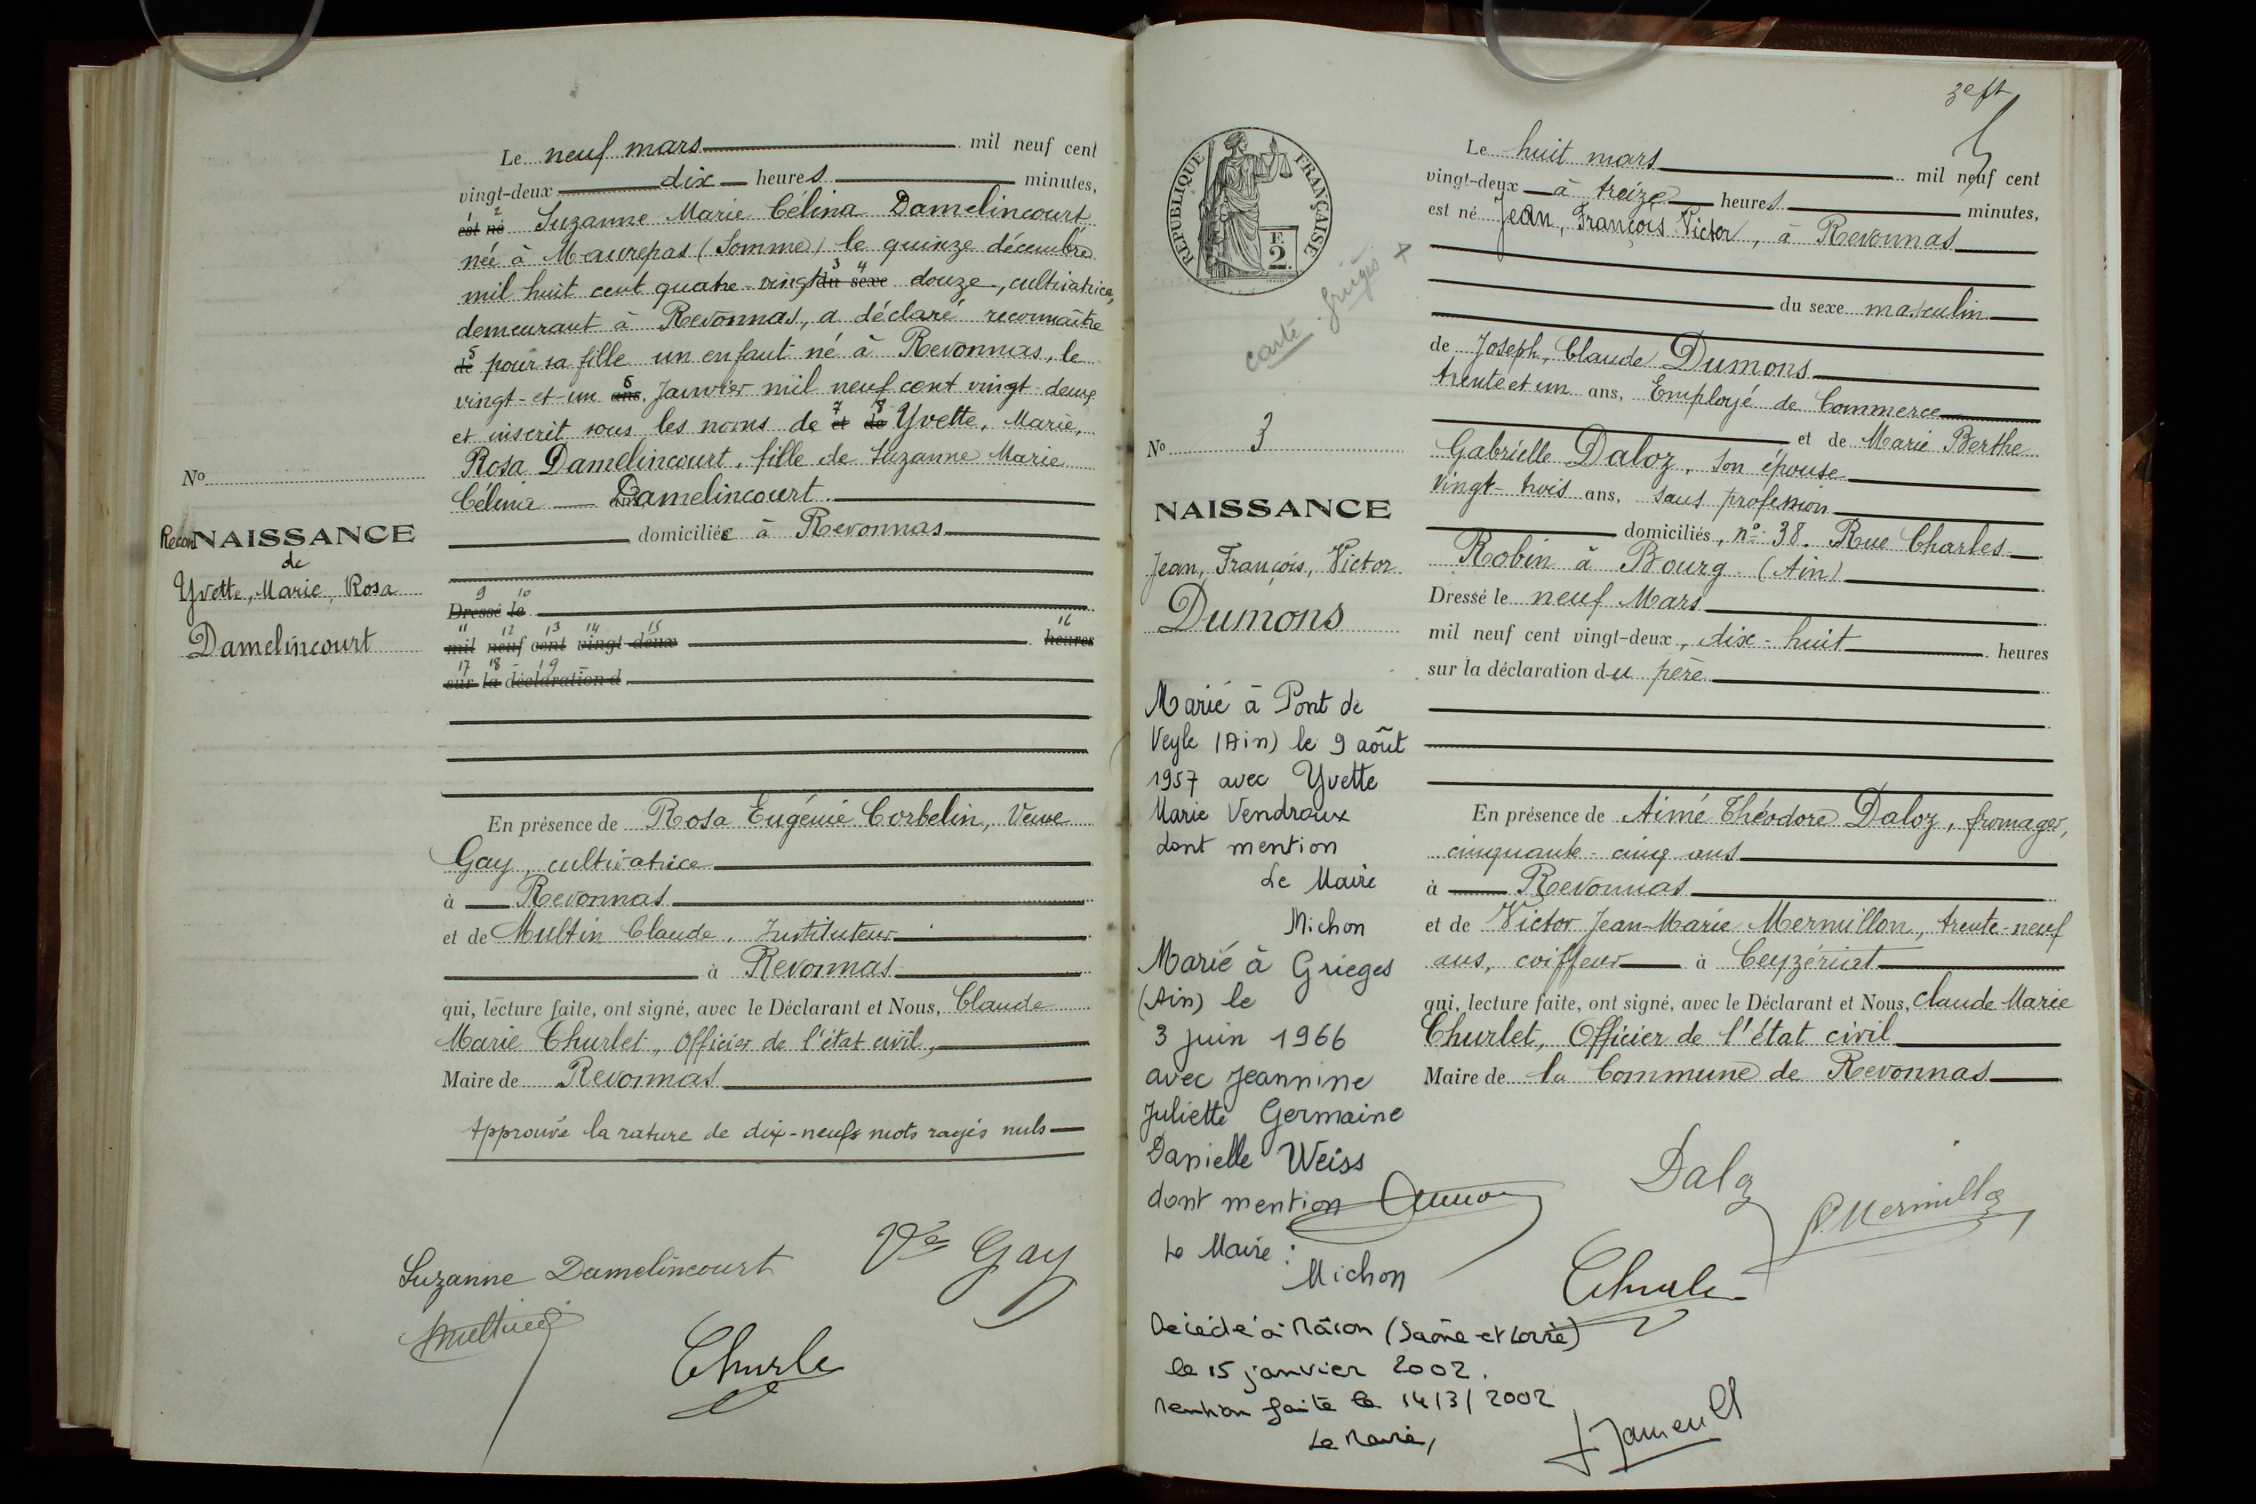 Le neuf mars mil neuf cent
vingt-deux dix heures minutes,
1 2
est né Suzanne Marie Célina Damelincourt
née à Maurepas (Somme) le quinze décembre
3 4
mil huit cent quatre-vingt du sexe douze, cultivatrice,
demeurant à Revonnas, a déclaré reconnaître
5
de pour sa fille un enfant né à Revonnas, le
6
vingt-et-un ans, Janvier mil neuf cent vingt-deux
7 8
et inscrit sous les noms de et de Yvette, Marie,
Rosa Damelincourt, fille de Suzanne Marie
Célina Damelincourt.
domiciliée à Revonnas
No
Recon NAISSANCE
de
Yvette, Marie, Rosa
Damelincourt
9 10
Dressé le
11 12 13 14 15 16
mil neuf cent vingt-deux heures
17 18 19
sur la déclaration d
En présence de Rosa Eugénie Corbelin, Veuve
Gay, cultivatrice
à Revonnas
et de Multin Claude, Instituteur
à Revonnas
qui, lecture faite, ont signé, avec le Déclarant et Nous, Claude
Marie Churlet, Officier de l'état civil,
Maire de Revonnas
Approuvé la rature de dix-neufs mots rayés nuls
Suzanne Damelincourt Vve Gay
Multin
Churle
3e ft
RÉPUBLIQUE FRANÇAISE
F.
2.
carte grièges x
Le huit mars mil neuf cent
vingt-deux à treize heures minutes,
est né Jean, François Victor, à Revonnas
du sexe masculin
de Joseph, Claude Dumons
trente et un ans, Employé de Commerce
et de Marie Berthe
Gabrielle Daloz, son épouse
vingt-trois ans, sans profession
domiciliés, n° 38. Rue Charles
Robin à Bourg (Ain)
Dressé le neuf Mars
mil neuf cent vingt-deux, dix-huit heures
sur la déclaration du père
En présence de Aimé Théodore Daloz, fromager,
cinquante-cinq ans
à Revonnas
et de Victor Jean-Marie Mermillon, trente-neuf
ans, coiffeur à Ceyzériat
qui, lecture faite, ont signé, avec le Déclarant et Nous, Claude Marie
Churlet, Officier de l'état civil
Maire de la Commune de Revonnas
No 3
NAISSANCE
Jean, François, Victor
Dumons
Marié à Pont de
Veyle (Ain) le 9 août
1957 avec Yvette
Marie Vendroux
dont mention
Le Maire
Michon
Marié à Grieges
(Ain) le
3 juin 1966
avec Jeannine
Juliette Germaine
Danielle Weiss
dont mention
Le Maire :
Michon
Décédé à Mâcon (Saône et Loire)
le 15 janvier 2002.
Mention faite le 14/3/2002
Le Maire,
Daloz
Churle